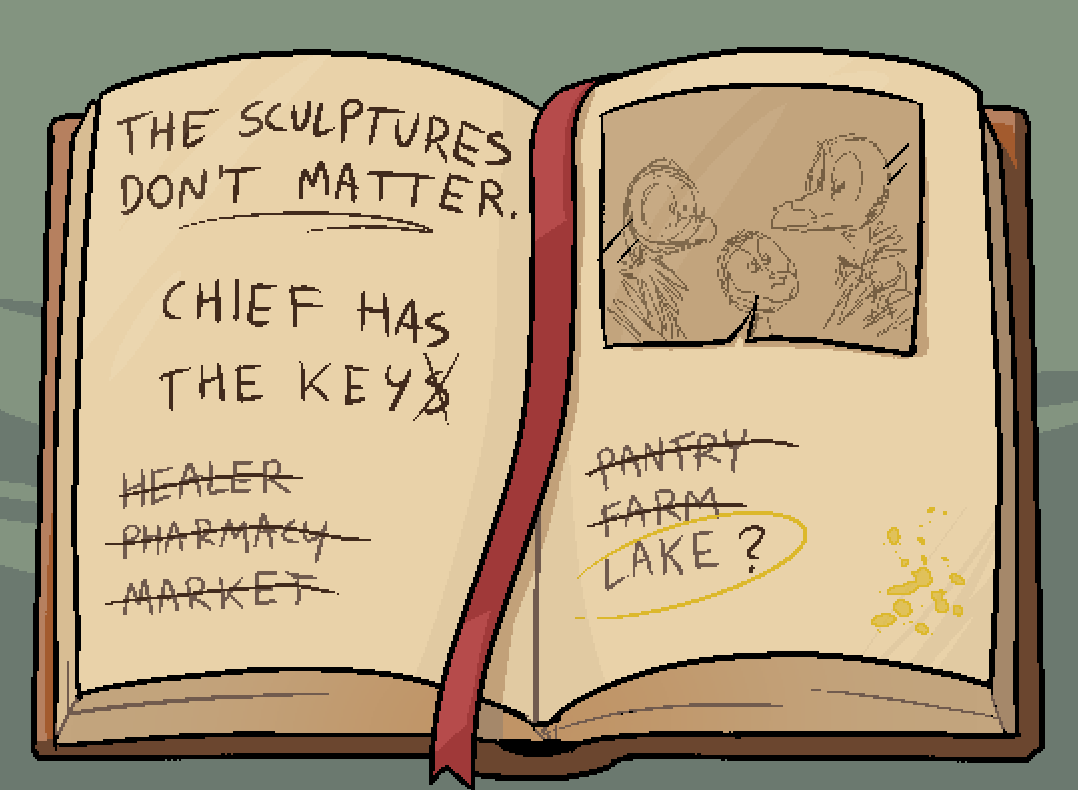 THE SCULPTURES
DON'T MATTER.
CHIEF HAS
THE KEYS
HEALER
PHARMACY
MARKET
PANTRY
FARM
LAKE ?